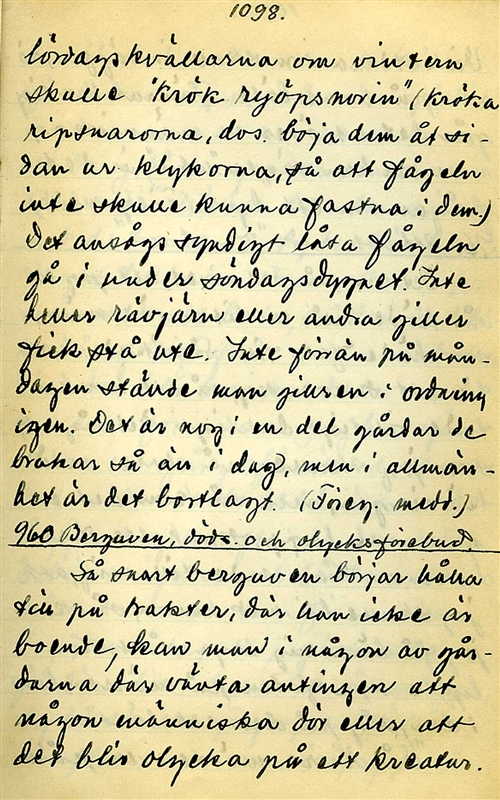 1098.
lördagskvällarna om vintern
skulle "krök rjöpsnorin" (kröka
ripsnarorna, dvs. böja dem åt si-
dan ur klykorna, så att fågeln
inte skulle kunna fastna i dem.)
Det ansågs syndigt låta fågeln
gå i under söndagsdygnet. Inte
heller rävjärn eller andra giller
fick stå ute. Inte förrän på mån-
dagen ställde man gillren i ordning
igen. Det är nog i en del gårdar de
brukar så än i dag, men i allmän-
het är det bortlagt. (Föreg. medd.)
960 Berguven, döds- och olycksförebud.
Så snart berguven börjar hålla
till på trakter, där han icke är
boende, kan man i någon av går-
darna där vänta antingen att
någon människa dör eller att
det blir olycka på ett kreatur.